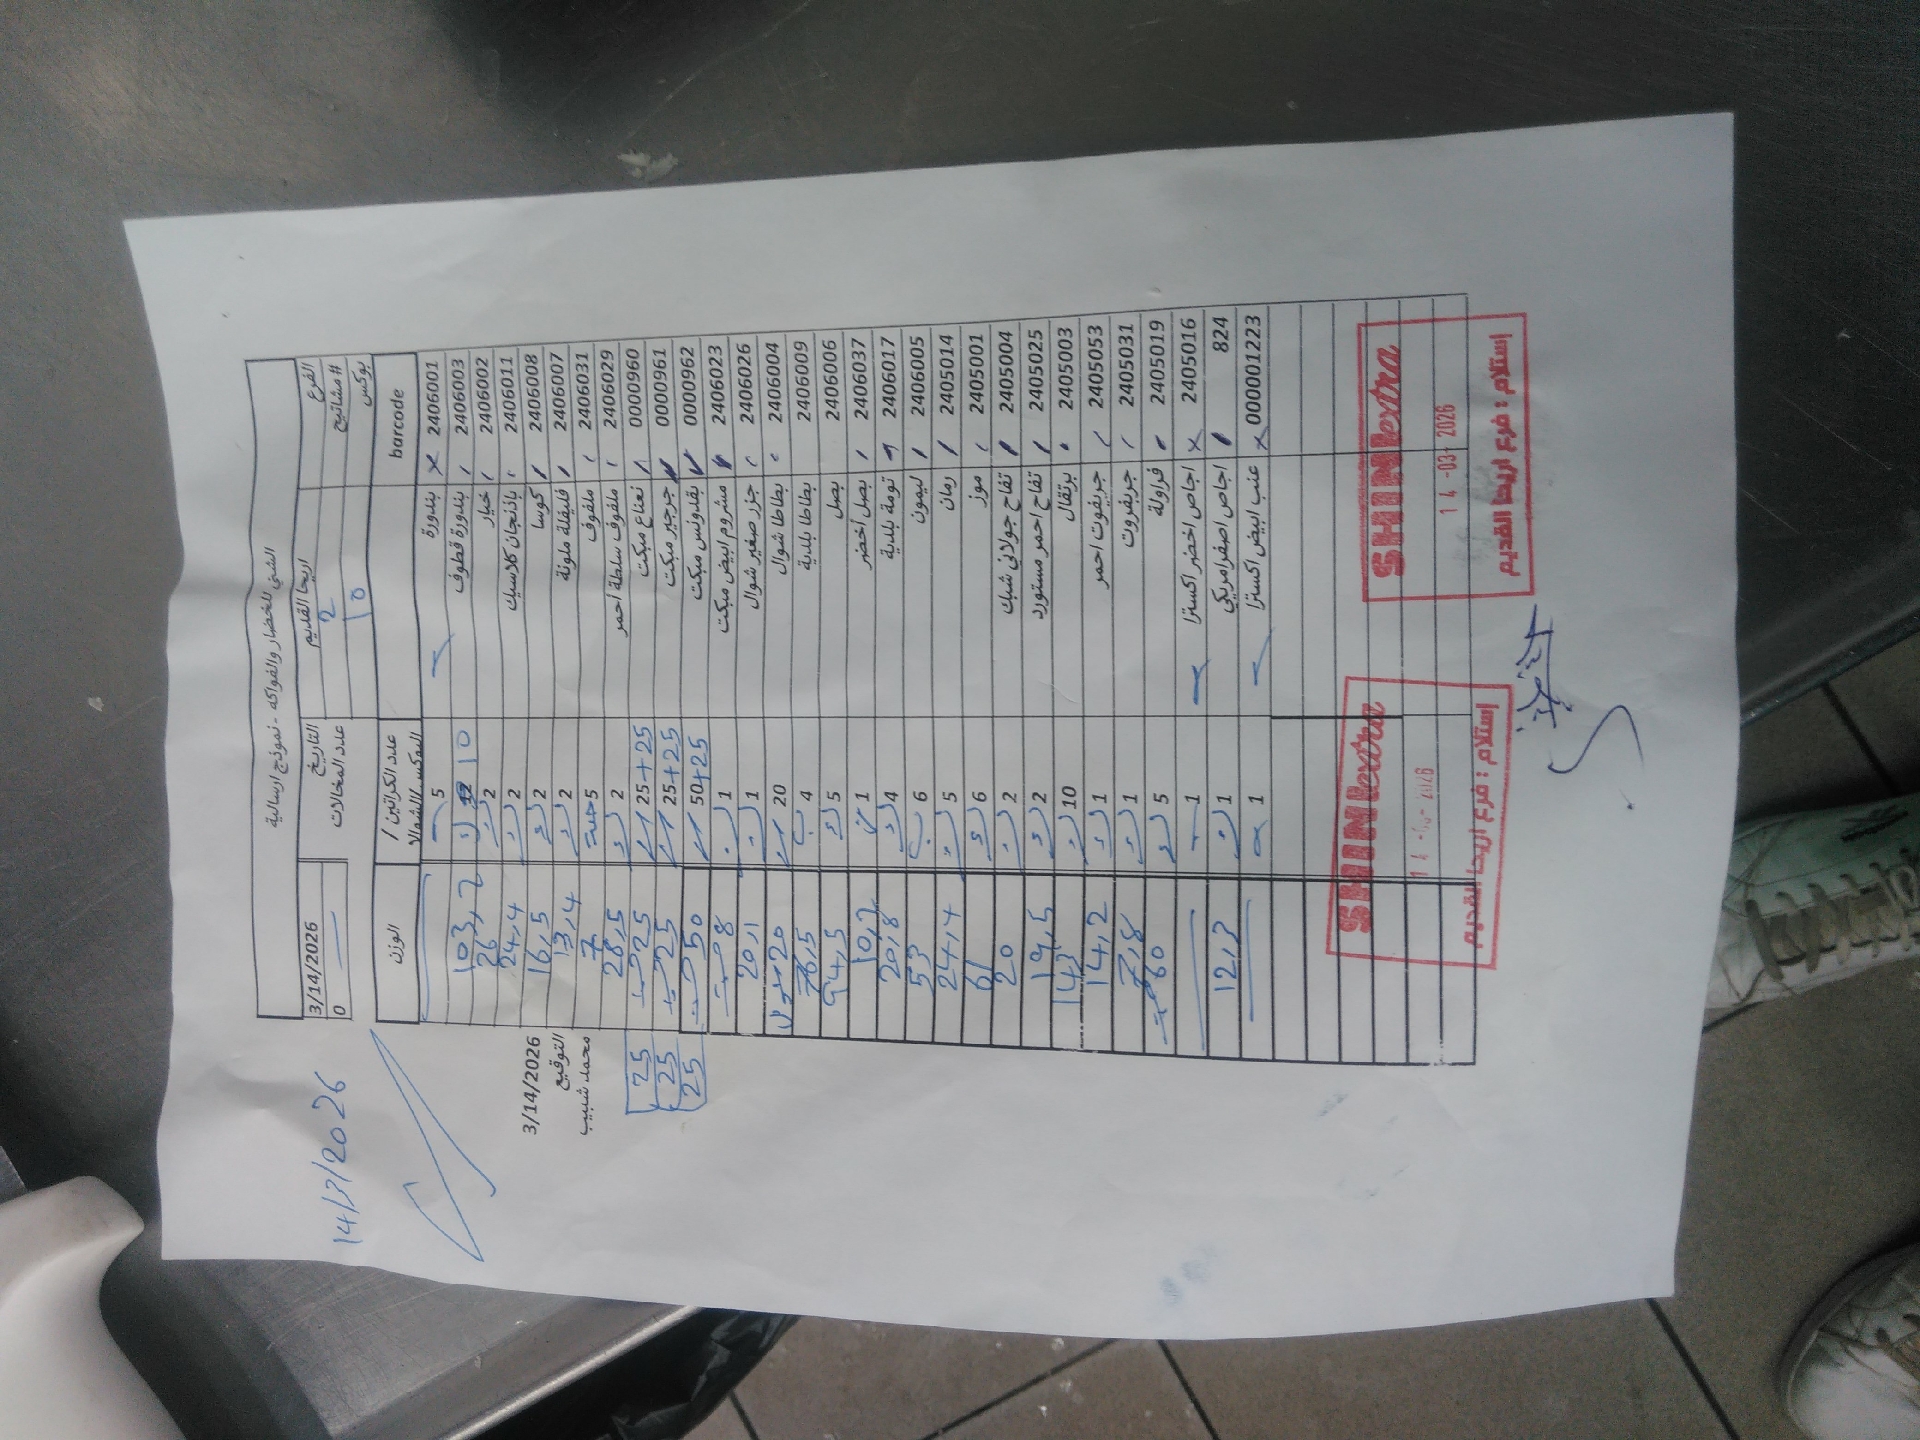 الشني للخضار والفواكه - نموذج ارسالية
الفرع اريحا القديم التاريخ 3/14/2026
# مشاتيح 2 عدد المخالات 0
بوكس 10
14/3/2026
barcode عدد الكراتين / البوكس/الشوال الوزن
2406001 بندورة 5
2406003 بندورة قطوف 10 103,2
2406002 خيار 2 26
2406011 باذنجان كلاسيك 2 24,4
2406008 كوسا 2 16,5
2406007 فليفلة ملونة 2 13,4
2406031 ملفوف 5 حبة 7
2406029 ملفوف سلطة احمر 2 28,5
0000960 نعناع مبكت 25+25 25 25
0000961 جرجير مبكت 25+25 25 25
0000962 بقدونس مبكت 50+25 50 25
2406023 مشروم ابيض مبكت 1 8
2406026 جزر صغير شوال 1 20,1
2406004 بطاطا شوال 20 20
2406009 بطاطا بلدية 4 76,5
2406006 بصل 5 94,5
2406037 بصل أخضر 1 10,2
2406017 تومة بلدية 4 20,8
2406005 ليمون 6 53
2405014 رمان 5 24,4
2405001 موز 6 61
2405004 تفاح جولاني شبك 2 20
2405025 تفاح احمر مستورد 2 19,5
2405003 برتقال 10 143
2405053 جريفوت احمر 1 14,2
2405031 جريفروت 1 7,8
2405019 فراولة 5 60
2405016 اجاص اخضر اكسترا 1
824 اجاص اصفر امريكي 1 12,3
000001223 عنب ابيض اكسترا 1
3/14/2026
التوقيع
محمد شبيب
SHINI extra
14 -03- 2026
إستلام : فرع اريحا القديم
SHINI extra
إستلام : فرع اريحا القديم